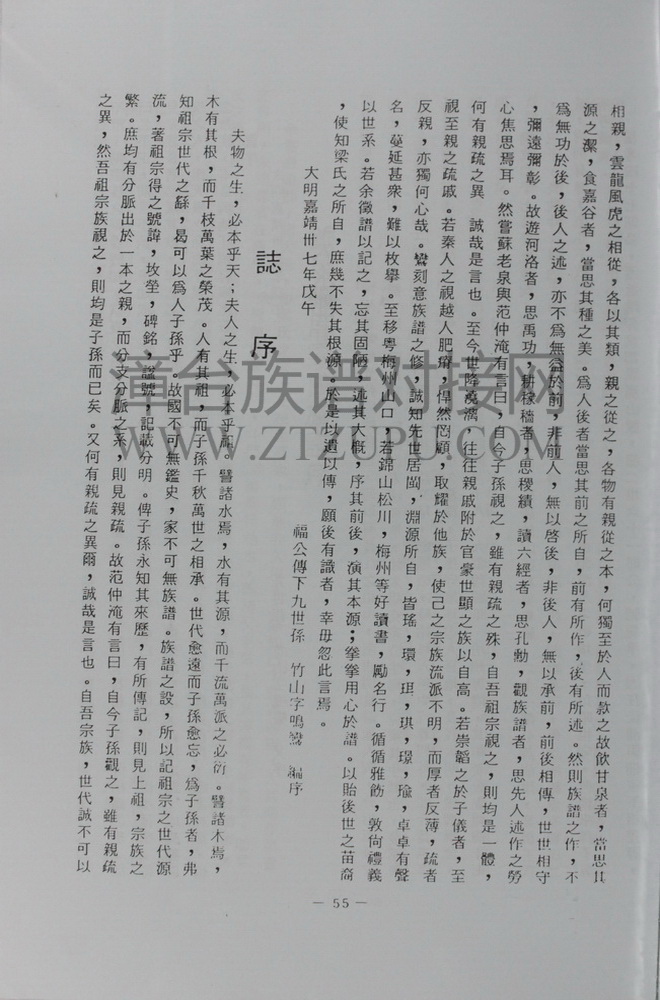 相親，雲龍風虎之相從，各以其類，親之從之，各物有親從之本，何獨至於人而歝之故飲甘泉者，當思其
源之潔，食嘉谷者，當思其種之美。爲人後者當思其前之所自，前有所作，後有所述。然則族譜之作，不
爲無功於後，後人之述，亦不爲無益於前，非前人，無以啓後，非後人，無以承前，前後相傳，世世相守
，彌遠彌彰。故遊河洛者，思禹功，耕稼穡者，思稷績，讀六經者，思孔勳，觀族譜者，思先人述作之勞
心焦思焉耳。然嘗蘇老泉與范仲淹有言曰，自今子孫視之，雖有親疏之殊，自吾祖宗視之，則均是一體，
何有親疏之異　誠哉是言也。至今世降澆漓，往往親戚附於官豪世顯之族以自高。若崇韜之於子儀者，至
視至親之疏戚。若秦人之視越人肥瘠，悍然罔顧，取耀於他族，使己之宗族流派不明，而厚者反薄，疏者
反親，亦獨何心哉。刻意族譜之修，誠知先世居閩，淵源所自，皆瑤，環，珇，琪，璟，瑜，卓卓有聲
名，蔓延甚衆，難以枚擧。至移粤梅州山口，若錦山松川，梅州等好讀書，勵名行。循循雅飭，敦尙禮義
以世系。若余徵譜以記之，忘其固陋，述其大概，序其前後，演其本源；拳拳用心於譜。以貽後世之苗裔
，使知梁氏之所自，庶幾不失其根源。於是以遺以傳，願後有識者，幸毋忽此言焉。
大明嘉靖卅七年戊午
福公傳下九世孫　竹山字鳴　編序
誌　序
夫物之生，必本乎天；夫人之生，必本乎祖。譬諸水焉，水有其源，而千流萬派之必衍。譬諸木焉，
木有其根，而千枝萬葉之榮茂。人有其祖，而子孫千秋萬世之相承。世代愈遠而子孫愈忘，爲子孫者，弗
知祖宗世代之繇，曷可以爲人子孫乎。故國不可無鑑史，家不可無族譜。族譜之設，所以記祖宗之世代源
流，著祖宗得之號諱，坟塋，碑銘，諡號，記載分明。俾子孫永知其來歷，有所傳記，則見上祖，宗族之
繁。庶均有分脈出於一本之親，而分支分脈之系，則見親疏。故范仲淹有言曰，自今子孫觀之，雖有親疏
之異，然吾祖宗族視之，則均是子孫而巳矣。又何有親疏之異爾，誠哉是言也。自吾宗族，世代誠不可以
— 55 —
漳台族谱对接网
WWW.ZTZUPU.COM